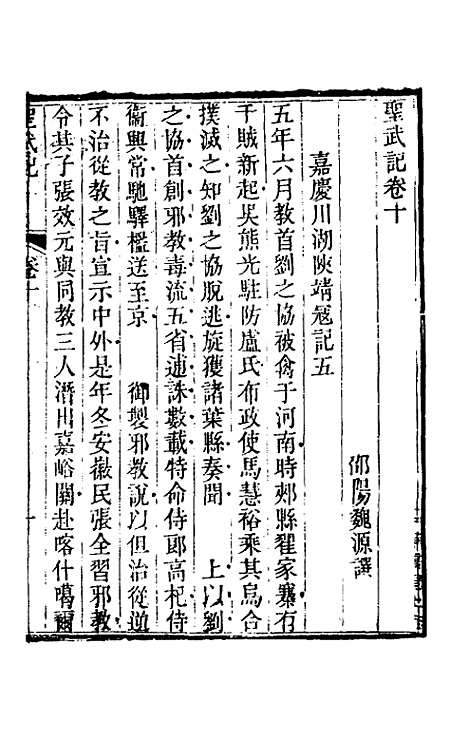 聖武記卷十
邵陽魏源譔
嘉慶川湖陝靖寇記五
五年六月教首劉之協被禽于河南時郟縣翟家寨有
千賊新起吴熊光駐防盧氏布政使馬慧裕乘其烏合
撲滅之知劉之協脫逃旋獲諸葉縣奏聞　上以劉
之協首創邪教毒流五省逋誅數載特命侍郎高杞侍
衞興常馳驛檻送至京　御製邪教說以但治從逆
不治從教之旨宣示中外是年冬安徽民張全習邪教
令其子張效元與同教三人潛出嘉峪關赴喀什噶爾
聖武記
卷十